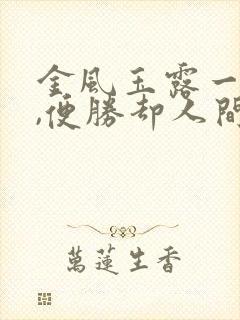 金風玉露一
,便勝却人間
萬蓮生香